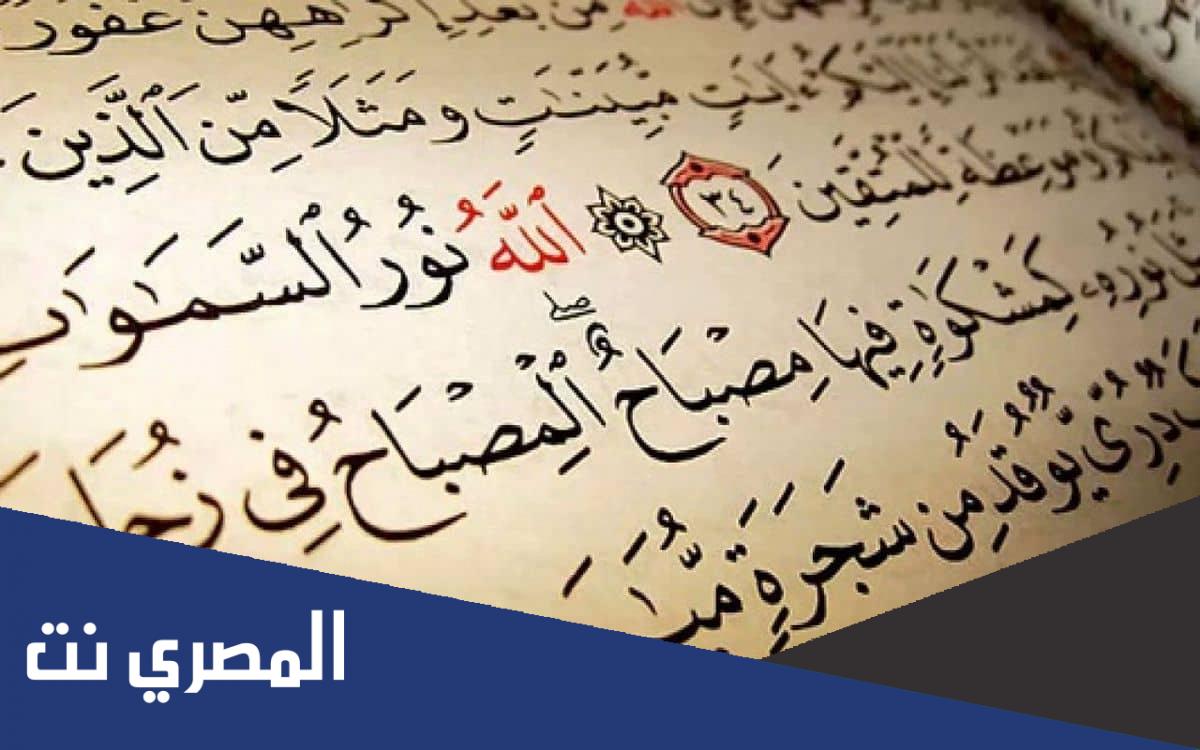 ٱللَّهَ مِنۢ بَعْدِ إِكْرَٰهِهِنَّ غَفُورٌ
إِلَيْكُمْ ءَايَٰتٍ مُّبَيِّنَٰتٍ وَمَثَلًا مِّنَ ٱلَّذِينَ
وَمَوْعِظَةً لِّلْمُتَّقِينَ ٣٤ ۞ ٱللَّهُ نُورُ ٱلسَّمَٰوَٰتِ
نُورِهِۦ كَمِشْكَوٰةٍ فِيهَا مِصْبَاحٌ ۖ ٱلْمِصْبَاحُ فِى زُجَا
دُرِّىٌّ يُوقَدُ مِن شَجَرَةٍ مُّبَٰ
المصري نت